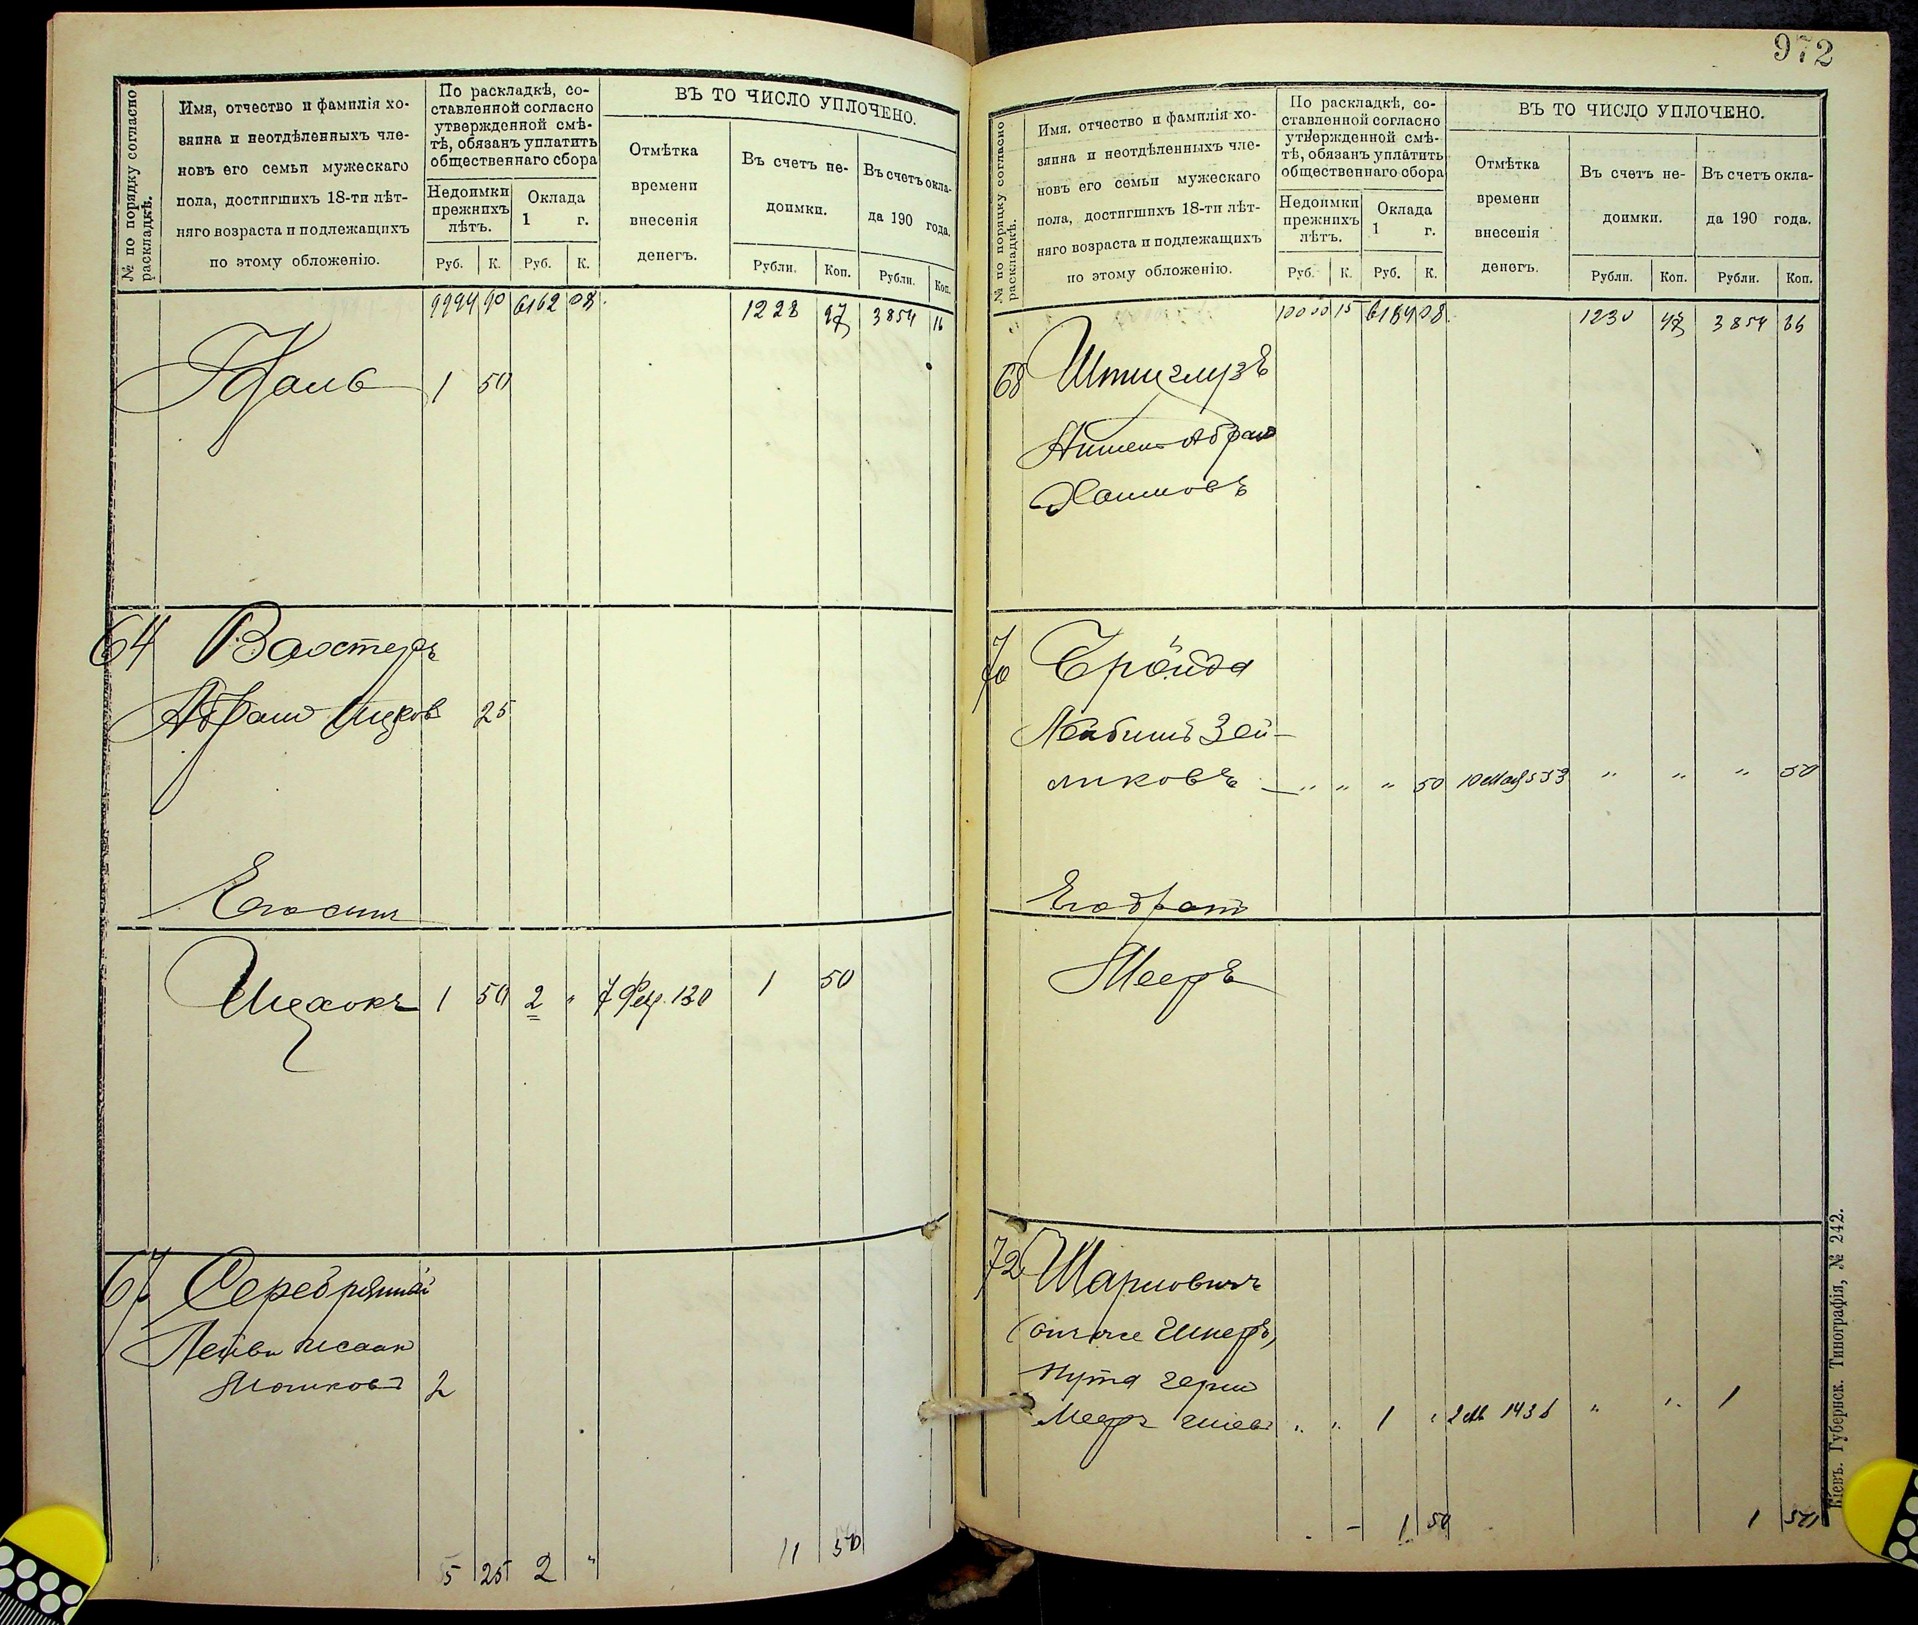 № по порядку согласно раскладкѣ.
Имя, отчество и фамилія хо-
зяина и неотдѣленныхъ чле-
новъ его семьи мужескаго
пола, достигшихъ 18-ти лѣт-
няго возраста и подлежащихъ
по этому обложенію.
По раскладкѣ, со-
ставленной согласно
утвержденной смѣ-
тѣ, обязанъ уплатить
общественнаго сбора
Недоимки
прежнихъ
лѣтъ.
Оклада
1 г.
Руб. К. Руб. К.
ВЪ ТО ЧИСЛО УПЛОЧЕНО.
Отмѣтка
времени
внесенія
денегъ.
Въ счетъ не-
доимки.
Рубли. Коп.
Въ счетъ окла-
да 190 года.
Рубли. Коп.
9994 90 6162 08 1228 97 3854 16
1 50
64 Вахтеръ
Абрам Ицков 25
Его сын
Ицхокъ 1 50 2 " 7 Фев. 130 1 50
67 Серебряный
Лейви Исаак
Мошков 2
5 25 2 " 1 50
972
№ по порядку согласно раскладкѣ.
Имя, отчество и фамилія хо-
зяина и неотдѣленныхъ чле-
новъ его семьи мужескаго
пола, достигшихъ 18-ти лѣт-
няго возраста и подлежащихъ
по этому обложенію.
По раскладкѣ, со-
ставленной согласно
утвержденной смѣ-
тѣ, обязанъ уплатить
общественнаго сбора
Недоимки
прежнихъ
лѣтъ.
Оклада
1 г.
Руб. К. Руб. К.
ВЪ ТО ЧИСЛО УПЛОЧЕНО.
Отмѣтка
времени
внесенія
денегъ.
Въ счетъ не-
доимки.
Рубли. Коп.
Въ счетъ окла-
да 190 года.
Рубли. Коп.
10000 15 6164 08 1230 47 3854 66
68
Абрам
Хаимовъ
70
Лейбишъ Зей-
ликовъ " " " 50 " " " 50
Его брат
Мееръ
72
Нута Герш
Меер " " 1 " 1436 " " 1
- 1 50 1 50
Кіевъ. Губернск. Типографія, № 242.